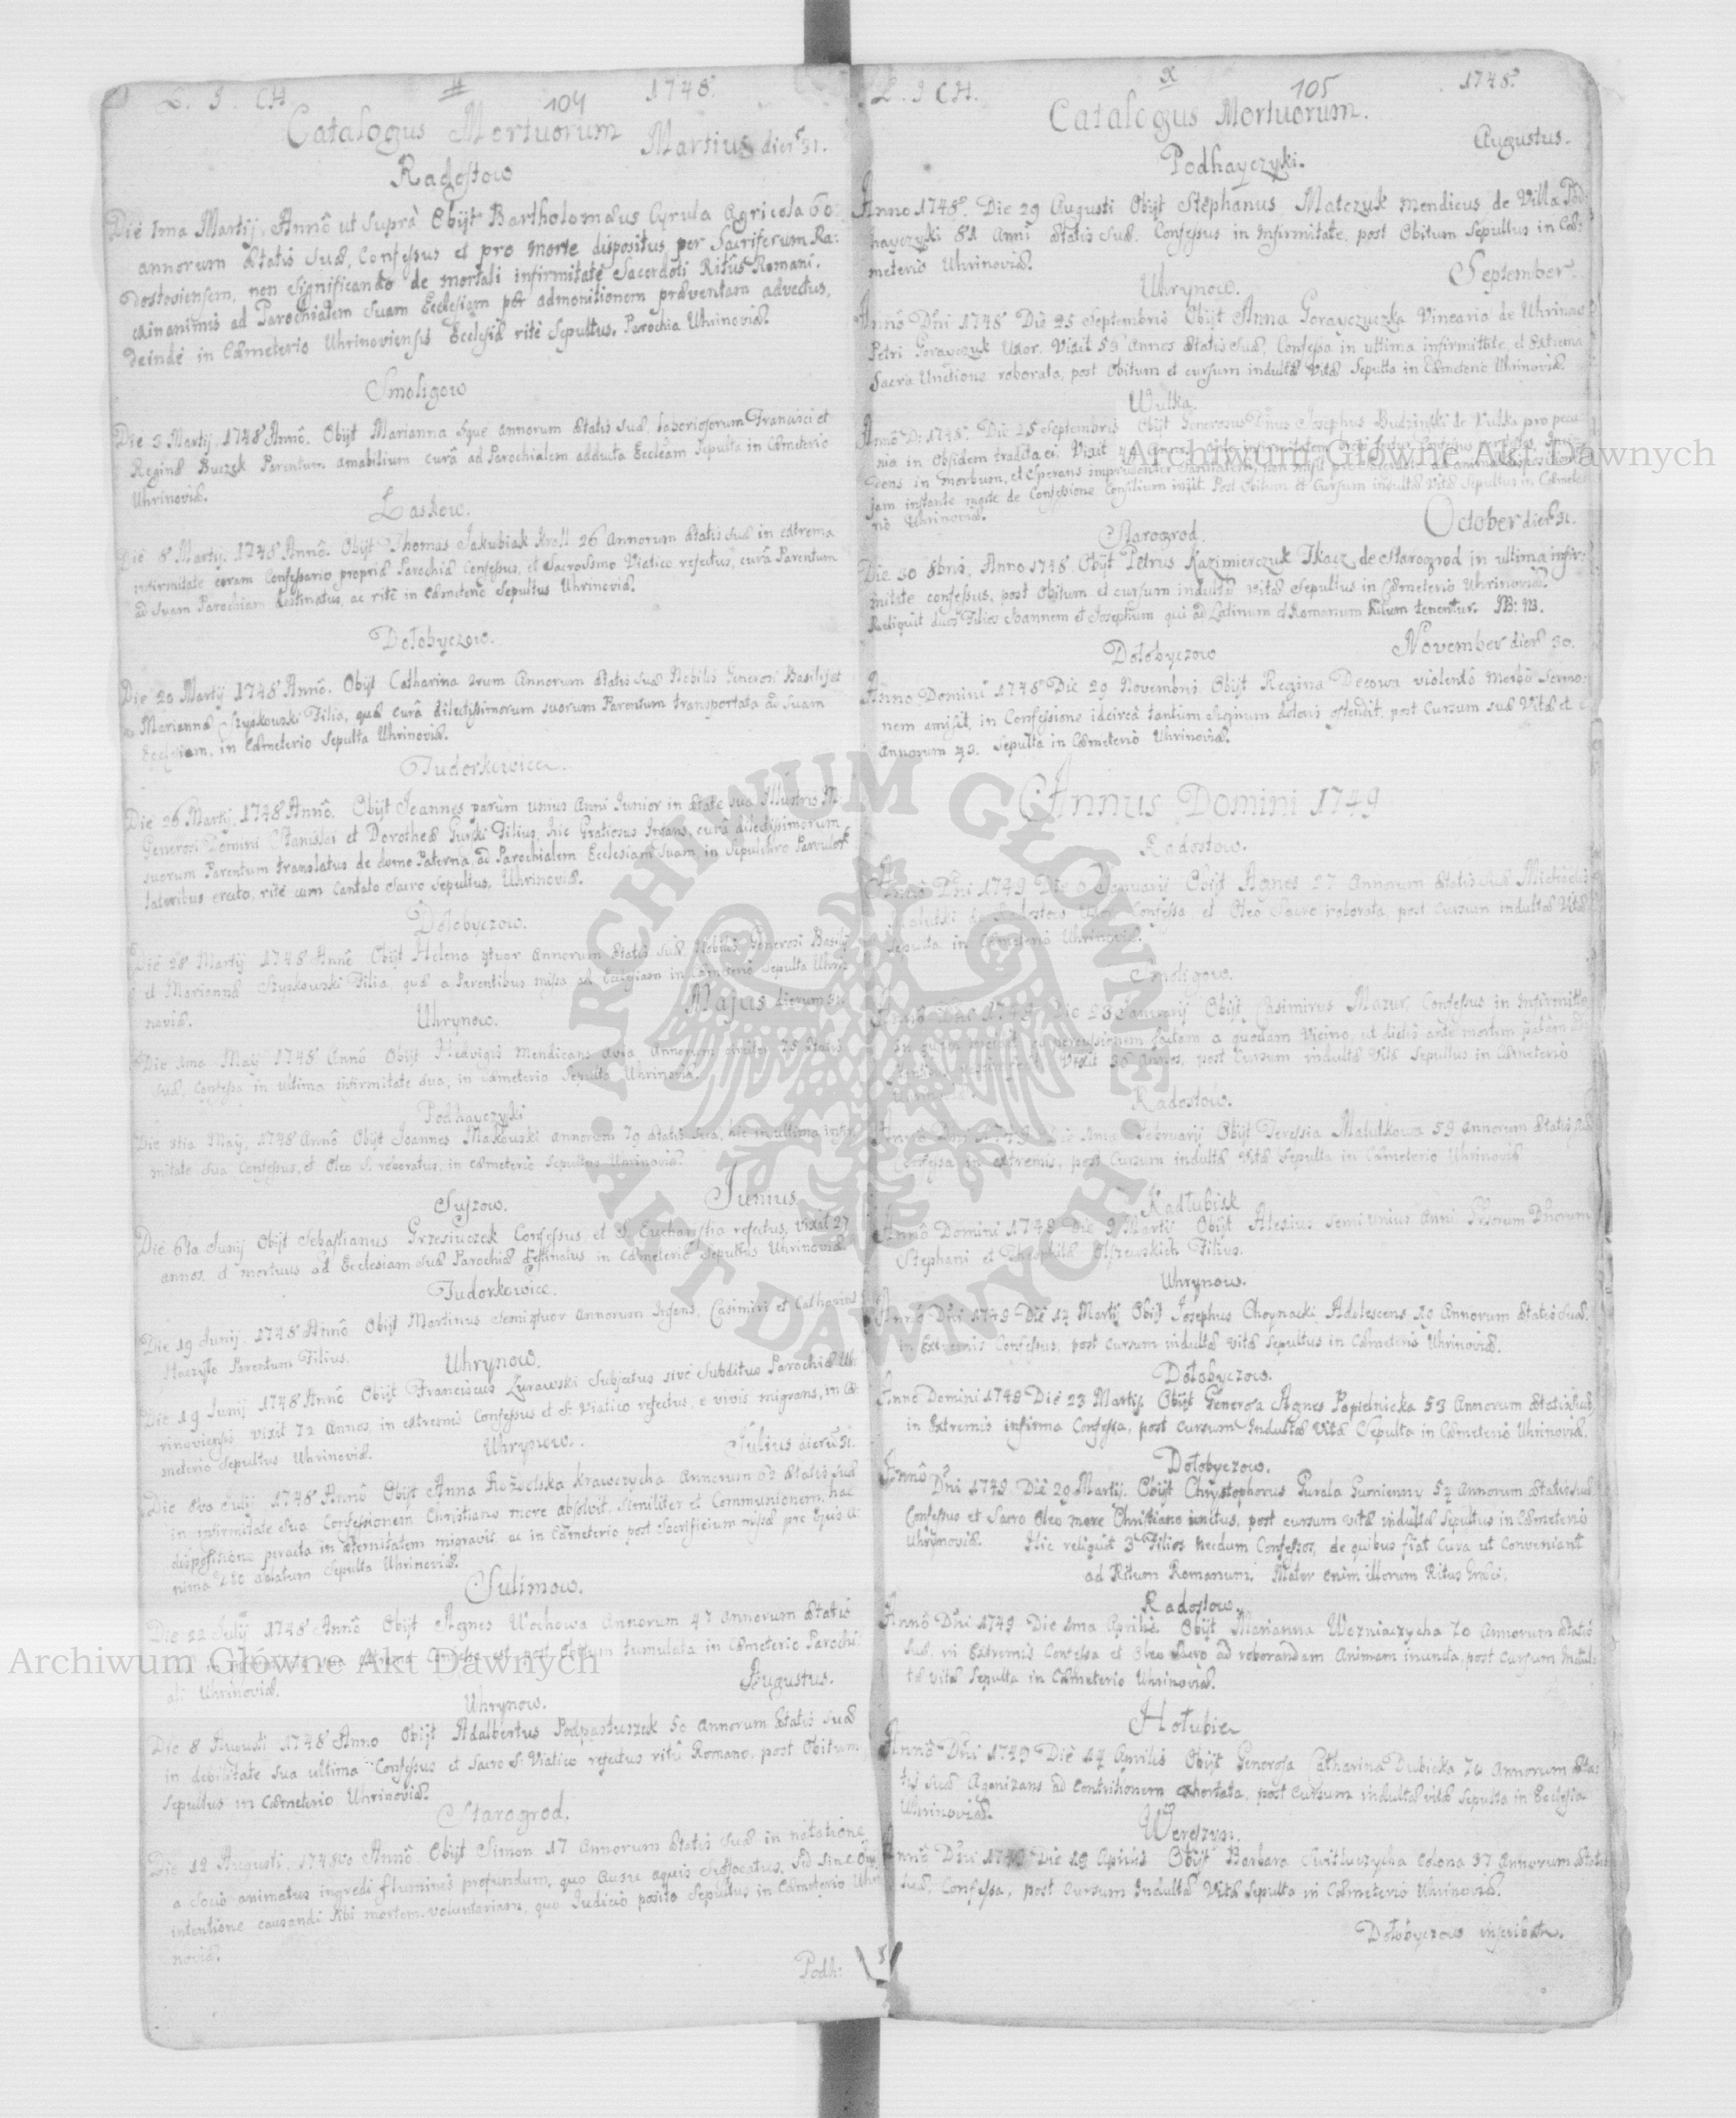 L. J. CH. # 104 1748.
Catalogus Mortuorum
Martius dier. 31.
Radostow
Die 1ma Martij, Annô ut suprà Obijt Bartholomæus Cyrula Agricola 60.
annorum Ætatis suæ, Confessus et pro morte dispositus per Sacriferum Ra:
dostoviensem, non significando de mortali infirmitate Sacerdoti Ritûs Romani.
exinanimis ad Parochialem suam Ecclesiam per admonitionem præventam advectus,
deinde in Cæmeterio Uhrinoviensis Ecclesiæ ritè Sepultus. Parochia Uhrinoviæ.
Smoligow
Die 3 Martij, 1748 Annô. Obijt Marianna annorum Ætatis suæ, laboriosorum Francisci et
Reginæ Buczek Parentum amabilium curâ ad Parochialem adducta Ecclêam Sepulta in Cæmeterio
Uhrinoviæ.
Laskow.
Die 8 Martij, 1748 Annô. Obijt Thomas Jakubiak Kroll 26 Annorum Ætatis suæ in extrema
infirmitate coram Confessario propriæ Parochiæ Confessus, et Sacrossmo Viatico refectus, curâ Parentum
ad suam Parochiam destinatus, ac ritè in Cæmeterio Sepultus Uhrinoviæ.
Dołobyczow.
Die 20 Martij 1748 Annô. Obijt Catharina 2rum Annorum Ætatis suæ Nobilis Generosi Basilij et
Mariannæ Szyskowski Filia, quæ curâ dilectissimorum suorum Parentum transportata ad suam
Ecclesiam, in Cæmeterio Sepulta Uhrinoviæ.
Tudorkowice.
Die 26 Martij, 1748 Annô. Obijt Joannes parùm unius Anni Junior in Ætate sua Illustris M.
Generosi Domini Stanislai et Dorotheæ Gurski Filius, hic Gratiosus Infans, curâ dilectissimorum
suorum Parentum translatus de domo Paterna, ad Parochialem Ecclesiam suam, in Sepulchro Parvulor.
lateribus erecto, ritè cum Cantato Sacro Sepultus. Uhrinoviæ.
Dołobyczow.
Die 28 Martij 1748 Annô Obijt Helena 4tuor annorum Ætatis suæ Nobilis Generosi Basilij
et Mariannæ Szyskowski Filia, quæ a Parentibus missa ad Ecclesiam in Cæmeterio Sepulta Uhri:
noviæ.
Majus dierum 31.
Uhrynow.
Die 1ma Maij 1748 Annô Obijt Hedvigis Mendicans avia, Annorum circiter 75 Ætatis
suæ, Confessa in ultima infirmitate sua, in Cæmeterio Sepulta Uhrinoviæ.
Podhayczyki
Maij, 1748 Annô Obijt Joannes Makowski annorum 79 Ætatis suæ, hic in ultima infir:
mitate sua Confessus, et Oleo S. roboratus, in Cæmeterio Sepultus Uhrinoviæ.
Junius.
Suszow.
Die 6ta Junij Obijt Sebastianus Grzesiuczek Confessus et S. Eucharystia refectus, vixit 27
annos, et mortuus ad Ecclesiam suæ Parochiæ destinatus in Cæmeterio Sepultus Uhrinoviæ.
Tudorkowice.
Die 19 Junij, 1748 Annô Obijt Martinus semiquatuor annorum Infans, Casimiri et Catharinæ
Parentum Filius.
Uhrynow.
Die 19 Junij 1748 Annô Obijt Franciscus Zurawski Subjectus sivè Subditus Parochiæ Uh:
rinoviensis vixit 72 Annos, in extremis Confessus et S. Viatico refectus, e vivis migrans, in Cæ:
meterio Sepultus Uhrinoviæ.
Julius dierû 31.
Uhrynow.
Die 8va Julij 1748 Annô Obijt Anna Krawczycha Annorum Ætatis suæ
in infirmitate sua Confessionem Christiano more absolvit, similiter et Communionem, hac
dispositione peracta in æternitatem migravit, ac in Cæmeterio post Sacrificium missæ pro ejus A:
nima Deo oblatum Sepulta Uhrinoviæ.
Sulimow.
Die 22 Julij 1748 Annô Obijt Agnes Wochowa Annorum 47 annorum Ætatis
suæ in infirmitate sua extrema Confessa est, post Obitum tumulata in Cæmeterio Parochi:
ali Uhrinoviæ.
Augustus.
Uhrynow.
Die 8 Augusti 1748 Anno Obijt Adalbertus Podpastuszek 50 Annorum Ætatis suæ
in debilitate sua ultima Confessus et Sacro S. Viatico refectus ritû Romano, post Obitum
Sepultus in Cæmeterio Uhrinoviæ.
Starogrod.
Die 12 Augusti, 1748vo Annô. Obijt Simon 17 Annorum Ætatis suæ in natatione
a socio animatus ingredi fluminis profundum, quo ausu aquis suffocatus, sed sine omni
intentione causandi sibi mortem voluntariam, quo Judicio posito Sepultus in Cæmeterio Uhri:
noviæ.
Podh:
L. J. CH. X 105 1748.
Catalogus Mortuorum.
Augustus.
Podhayczyki.
Anno 1748. Die 29 Augusti Obijt Stephanus Matczuk mendicus de Villa Pod:
hayczyki 81 Anni Ætatis suæ. Confessus in infirmitate, post Obitum Sepultus in Cæ:
meterio Uhrinoviæ.
September.
Uhrynow.
Annô Dni 1748 Die 25 Septembris Obijt Anna Gorayczuczka Vinearia de Uhrinow
Petri Gorayczuk Uxor. Vixit 59 Annos Ætatis suæ, Confessa in ultima infirmitate, et Extrema
Sacra Unctione roborata, post Obitum et cursum indultæ Vitæ Sepulta in Cæmeterio Uhrinoviæ
Wulka.
Annô D. 1748. Die 25 Septembris Obijt Generosus Dnus Josephus Budzinski de Vulka pro pecu:
nia in Obsidem tradita ei. Vixit
dens in morbum, et sperans imprudenter sanitatem, non misit pro Sacerdote ad animæ dispositionem
jam instante morte de Confessione Consilium iniit. Post Obitum et Cursum indultæ vitæ Sepultus in Cæmete:
rio Uhrinoviæ.
October dier. 31.
Starogrod.
Die 30 8bris, Anno 1748. Obijt Petrus Kazimierczuk Tkacz de Starogrod in ultima infir:
mitate confessus, post Obitum et cursum indultæ vitæ Sepultus in Cæmeterio Uhrinoviæ.
Reliquit duos Filios Joannem et Josephum qui ad Latinum et Romanum Ritum tenentur. NB: NB.
November dier. 30.
Dołobyczow
Anno Domini 1748 Die 29 Novembris Obijt Regina Decowa violentô morbô Sermo:
nem amisit, in Confessione idcircà tantùm Signum doloris ostendit, post Cursum suæ Vitæ et
Annorum 93. Sepulta in Cæmeterio Uhrinoviæ.
Annus Domini 1749
Radostow.
Annô Dni 1749 Die 6 Januarij Obijt Agnes 27 Annorum Ætatis suæ Michaelis
Malutki de Radostow Uxor Confessa et Oleo Sacro roborata, post cursum indultæ Vitæ
Sepulta in Cæmeterio Uhrinoviæ.
Smoligow.
Annô Dni 1749 Die 23 Januarij Obijt Casimirus Mazur, Confessus in infirmitate
in quam incidit ob percussionem factam a quodam Vicino, ut dictis ante mortem
Vixit 30 Annos, post Cursum indultæ Vitæ Sepultus in Cæmeterio
Uhrinoviæ.
Radostow.
Annô Dni 1749 Die 1ma Februarij Obijt Teressia Malutkowa 59 annorum Ætatis suæ
Confessa in extremis, post Cursum indultæ Vitæ Sepulta in Cæmeterio Uhrinoviæ
Kadłubisk
Annô Domini 1749 Die 9 Martij Obijt Alexius semi unius Anni Dnorum
Stephani et Theophilæ Olszewskich Filius.
Uhrynow.
Annô Dni 1749 Die 14 Martij Obijt Josephus Choynacki Adolescens 19 Annorum Ætatis suæ.
in Extremis Confessus, post cursum indultæ vitæ Sepultus in Cæmeterio Uhrinoviæ.
Dołobyczow.
Anno Domini 1749 Die 23 Martij. Obijt Generosa Agnes Popielnicka 53 Annorum Ætatis suæ,
in Extremis infirma Confessa, post cursum Indultæ Vitæ Sepulta in Cæmeterio Uhrinoviæ.
Dołobyczow.
Annô Dni 1749 Die 29 Martij. Obijt Chrystophorus Gurala Gumienny 54 Annorum Ætatis suæ,
Confessus et Sacro Oleo more Christiano unctus, post cursum vitæ indultæ Sepultus in Cæmeterio
Uhrynoviæ. Hic reliquit 3 Filios necdum Confessos, de quibus fiat Cura ut conveniant
ad Ritum Romanum. Mater enim illorum Ritus Græci.
Radostow.
Annô Dni 1749 Die 1ma Aprilis Obijt Marianna Wozniaczycha 70 Annorum Ætatis
suæ, in Extremis Confessa et Oleo Sacro ad roborandam Animam inuncta, post cursum Indul:
tæ vitæ Sepulta in Cæmeterio Uhrinoviæ.
Hołubie
Annô Dni 1749 Die 14 Aprilis Obijt Generosa Catharina Dubicka 74 Annorum Æta:
tis suæ Agonizans ad contritionem exhortata, post cursum indultæ vitæ Sepulta in Ecclesia
Uhrinoviæ.
Wereszyn.
Annô Dni 1749 Die 18 Aprilis Obijt Barbara Switluczycha Colona 37 Annorum Ætatis
suæ, Confessa, post cursum Indultæ Vitæ Sepulta in Cæmeterio Uhrinoviæ.
Dołobyczow
Archiwum Główne Akt Dawnych
Archiwum Główne Akt Dawnych
ARCHIWUM GŁÓWNE
AKT DAWNYCH